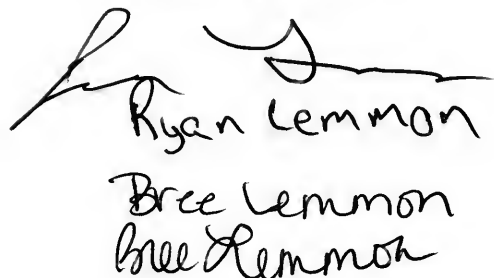 Ryan Lemmon
Bree Lemmon
Bree Lemmon